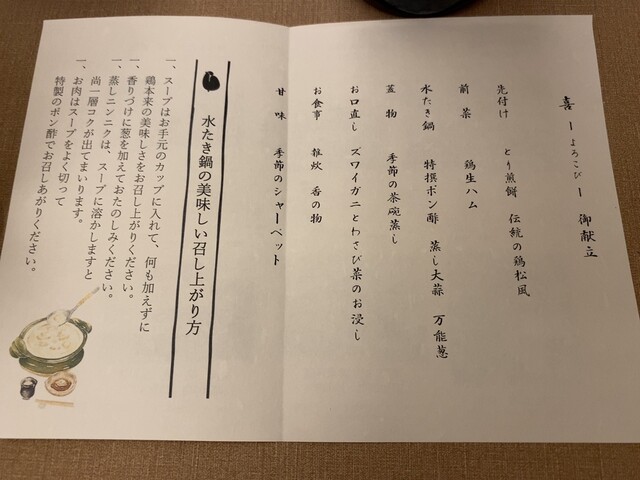 喜 ーよろこびー 御献立
先付け とり煎餅 伝統の鶏松風
前菜 鶏生ハム
水たき鍋 特撰ポン酢 蒸し大蒜 万能葱
蓋物 季節の茶碗蒸し
お口直し ズワイガニとわさび菜のお浸し
お食事 雑炊 香の物
甘味 季節のシャーベット
水たき鍋の美味しい召し上がり方
一、スープはお手元のカップに入れて、何も加えずに
鶏本来の美味しさをお召し上がりください。
一、香りづけに葱を加えておたのしみください。
一、蒸しニンニクは、スープに溶かしますと
尚一層コクが出てまいります。
一、お肉はスープをよく切って
特製のポン酢でお召しあがりください。